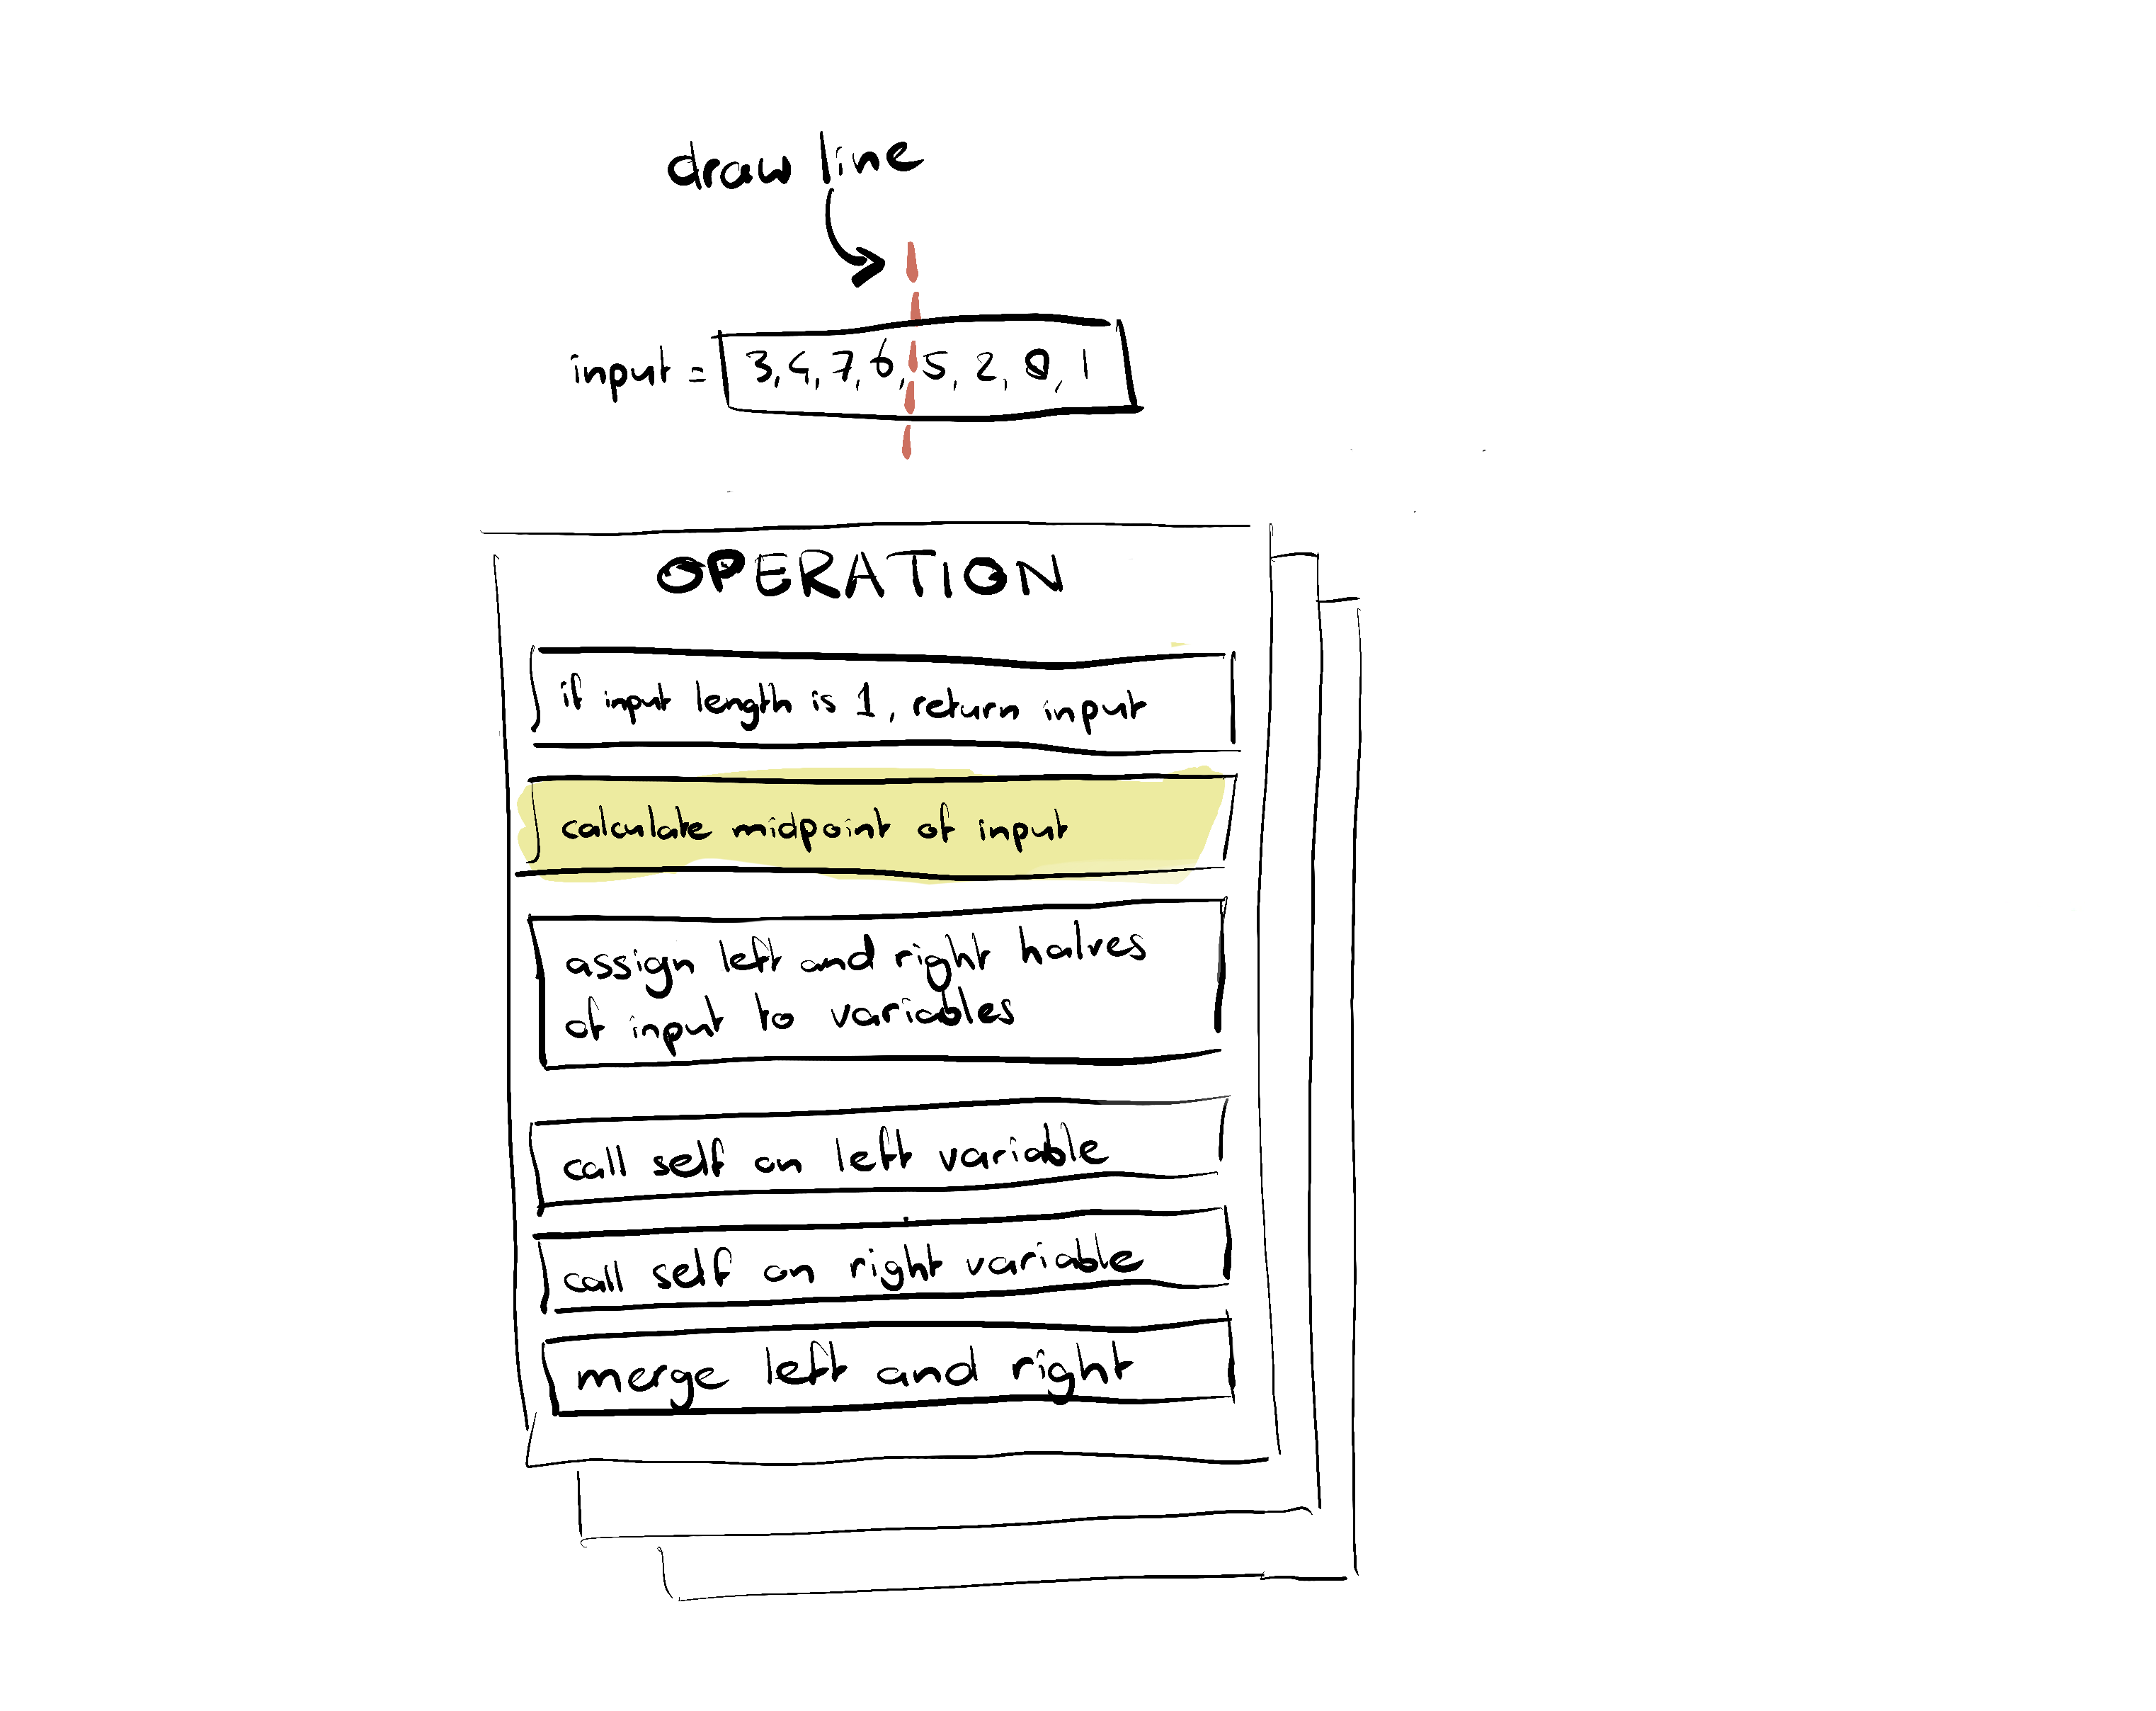 draw line
input = 3, 4, 7, 6, 5, 2, 8, 1
OPERATION
if input length is 1, return input
calculate midpoint of input
assign left and right halves
of input to variables
call self on left variable
call self on right variable
merge left and right